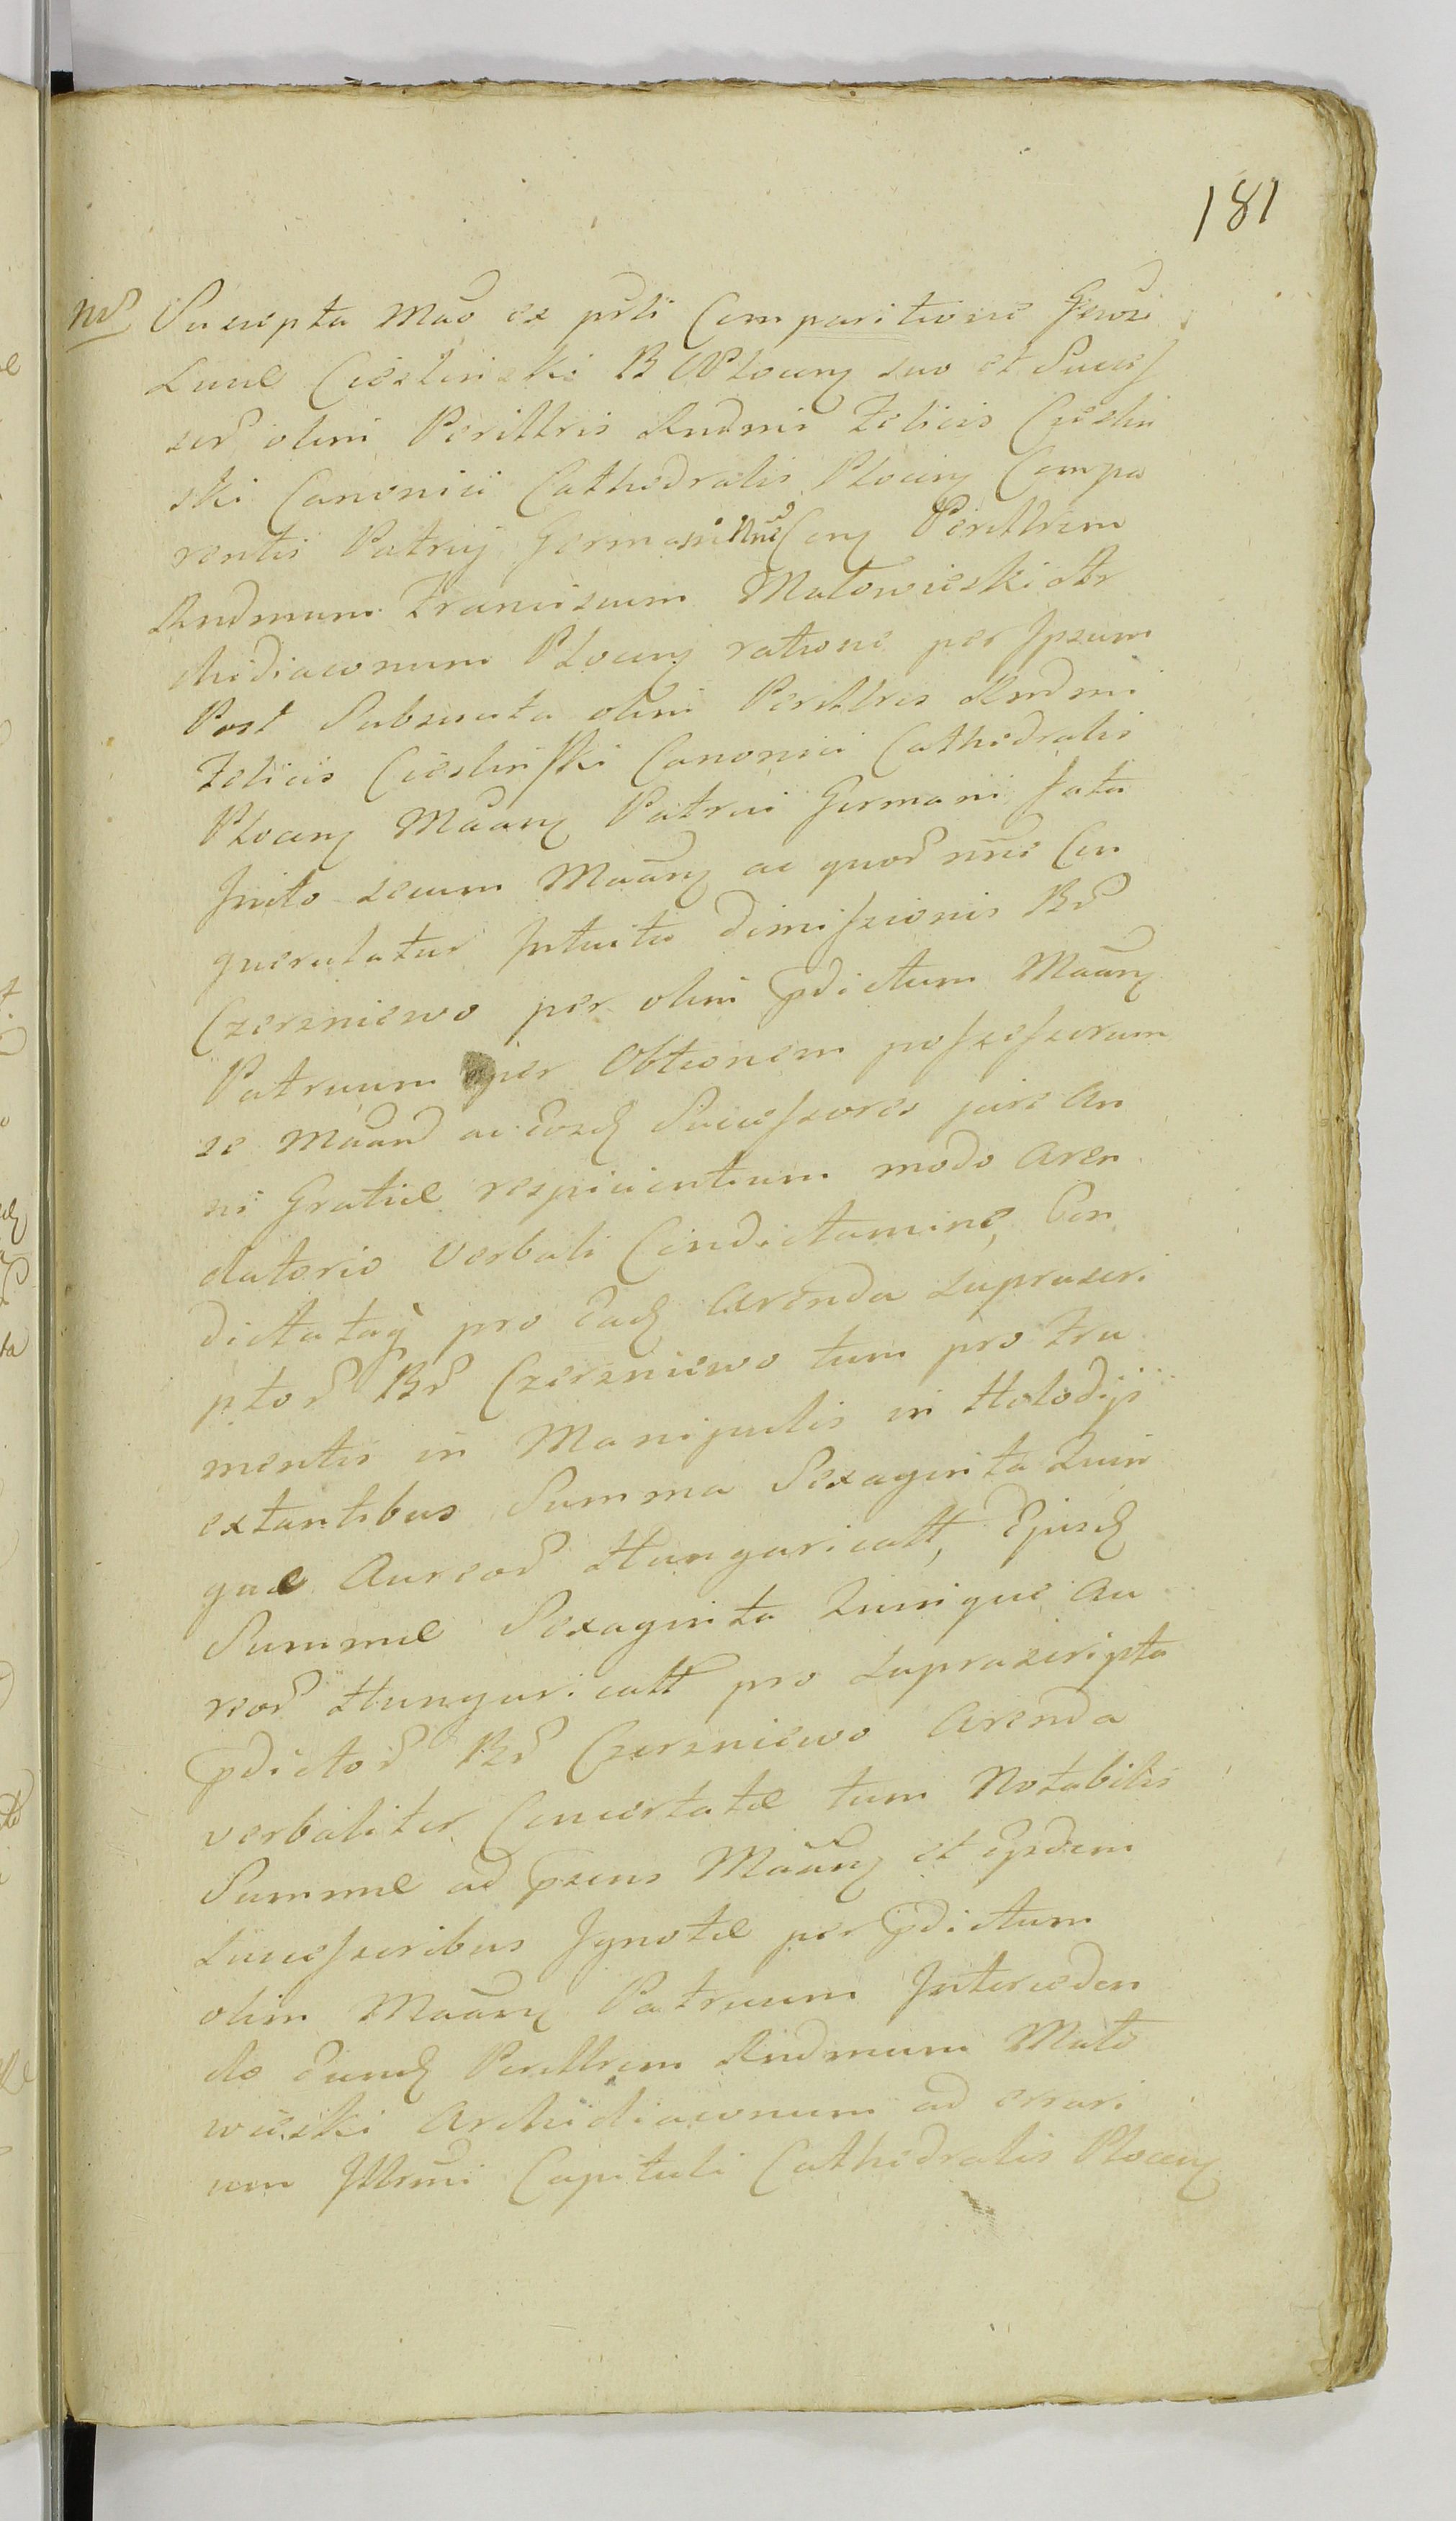 181
Nrs Suscepta Mão ex prsti Comparitione Gensi
Lucæ Cieslinski B C Plocens suo et Succes
sor olim Perillris Rndmi Felicis Cieslin
ski Canonici Cathedralis Plocens Compa
rentis Patruj Germani Nnē Cons Perillrem
Rndmum Franciscum Małowieski Ar
chidiaconum Plocens ratione per Ipsum
Post Subsecuta olim Perillris Rndmi
Felicis Cieslinski Canonici Cathedralis
Plocens Māans Patrui Germani fata
Inito secum Māans ac quor nne Con
querulatur Intuitu dimissionis Br
Czerzniewo per olim pdictum Māans
Patruum per Obtionem possessorum
se Māand ac eosd Successores jure An
ni Gratiæ respicientium modo Aren
datorio Verbali Condictamine, Con
dictataq pro ead Arenda suprascri
ptor Br Czerzniewo tum pro fru
mentis in Manipulis in Allodijs
extantibus Summa Sexaginta Quin
que Aureor Hungaricall, Ejusd
Summæ Sexaginta Quinque Au
reor Hungaricall pro suprascripta
pdictor Br Czerzniewo Arenda
verbaliter Concertatæ tum Notabilis
Summæ ad psens Māans et ejsdem
Successoribus Ignotæ per pdictum
olim Māans Patruum Intercedem
do eund Perillrem Rndmum Mało
wieski Archidiaconum ad errari
um Illrmi Capituli Cathedralis Plocens